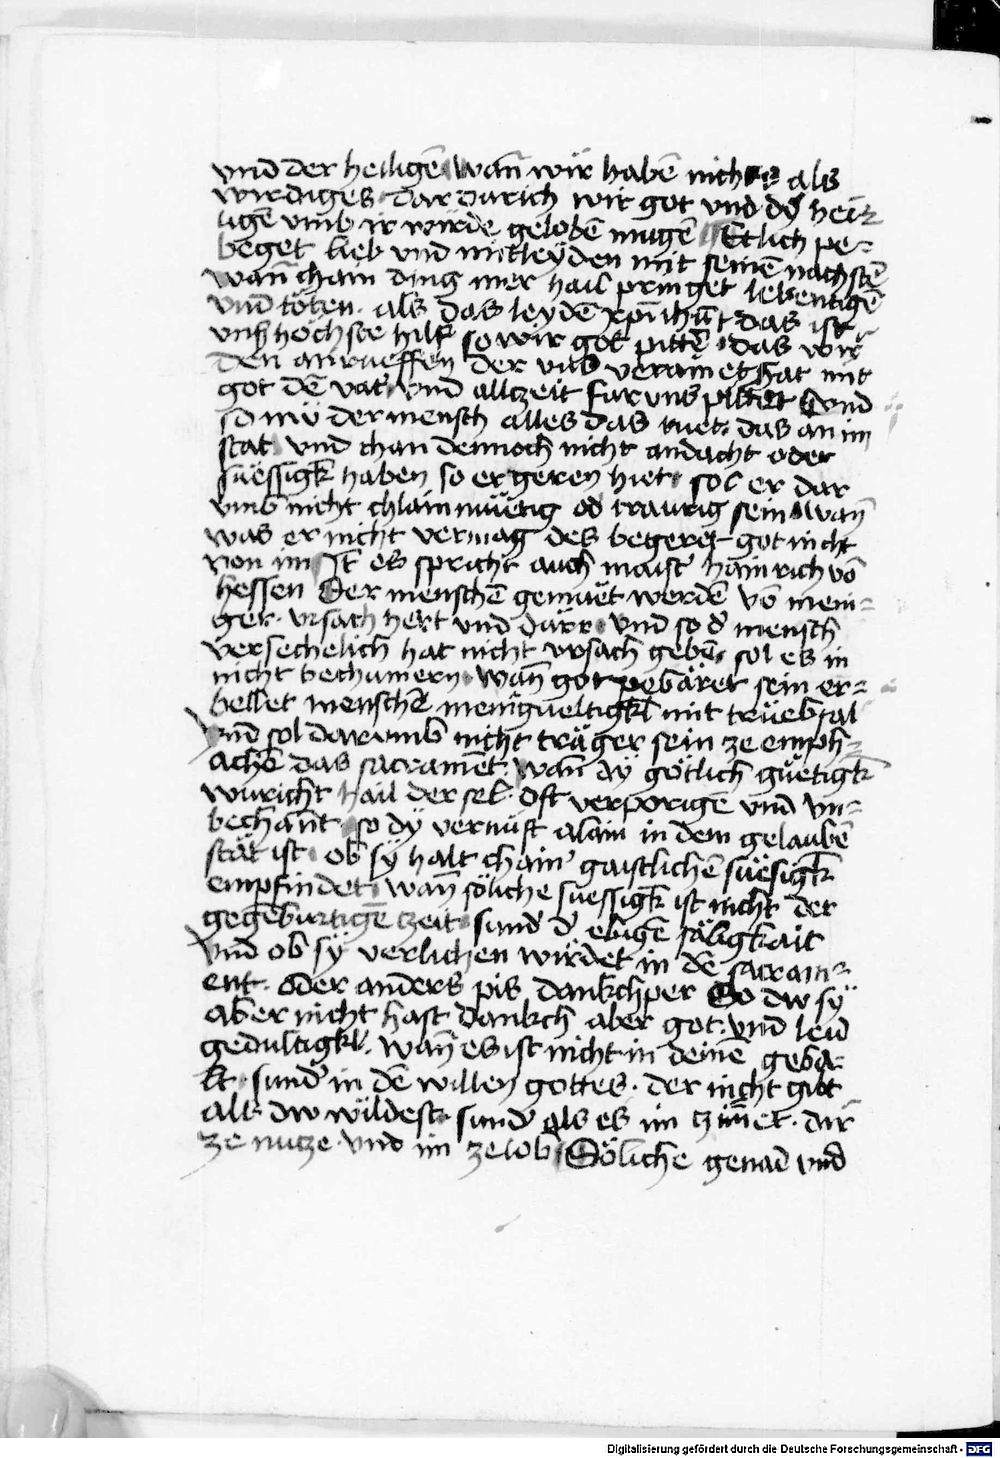 vnd der heiligē wan̄ wir habē nichts als
wirdiges dar durich wir got vnd dÿ hei-
ligē vmb ir wirde gelobē mugē Etlich pe-
beget lieb vnd mitleyden mit seinē nachstē
wan̄ chain ding mer hail pringet lebentigē
vnd töten. als das leydē xp̄i ih̄u das ist
vnß hochste hilf so wir got pittē das wir
den anrueffen der vns verainet hat mit
got dē vat' vnd allczeit fur vns pittet vnd
so nu der mensch alles das tuet das an im
stat vnd chan dennoch nicht andacht oder
suessigk haben so er geren hiet sol er dar
vmb nicht chlainmuetig od traurig sein wan̄
was er nicht vermag des begeret got nicht
von im It es spricht auch maist' hainrich vō
hessen Der menschē gemüet werdē vō meni-
ger vrsach hert vnd dürr vnd so d' mensch
versechelich hat nicht vrsach gebē sol es in
nicht bechumern wan̄ got pebäret sein er-
bellet menschē menigueltigkl mit trüebsal
vnd sol darumb nicht träger sein ze emph-
achē das sacramēt. wan̄ dÿ götlich güetigk
wuricht hail der sel. oft verporigē vnd vn-
bechant so dÿ vernuft alain in dem gelaubē
stät ist ob sÿ halt chain' gaistlichē süesigk
empfindet wan̄ söliche suessigk ist nicht der
gegēburtigē czeit sund' d' ebigē säligkait
Vnd ob sÿ verlichen wirdet in dē sacram-
ent. oder anders pis dankchper So dw sÿ
aber nicht hast dankch aber got. vnd leid
gedultigkl. wan̄ es ist nicht in deinē geba-
lt sund' in dē willen gottes. der nicht gibt
als dw wildest sund' als es im czimet. dir
ze nutze vnd im ze lob Söliche genad vnd
Digitalisierung gefördert durch die Deutsche Forschungsgemeinschaft - DFG